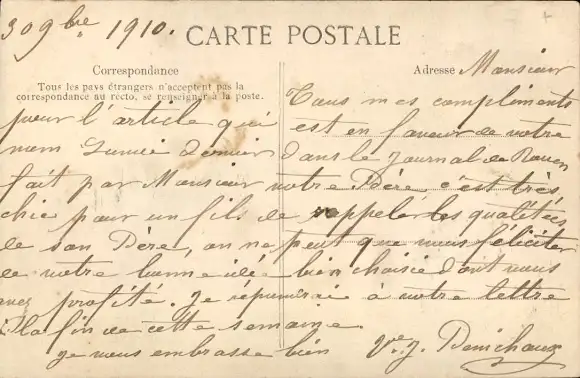 30 9bre 1910.
CARTE POSTALE
Correspondance
Adresse
Tous les pays étrangers n'acceptent pas la
correspondance au recto, se renseigner à la poste.
Monsieur
Tous mes compliments
pour l'article qui est en faveur de votre
nom dans le Journal de Rouen
fait par Monsieur votre Père, c'est très
chic pour un fils de rappeler les qualités
de son Père, on ne peut que vous féliciter
de votre bonne idée bien choisie dont vous
avez profité. Je répondrai à votre lettre
à la fin de cette semaine.
je vous embrasse bien
Ve. J.